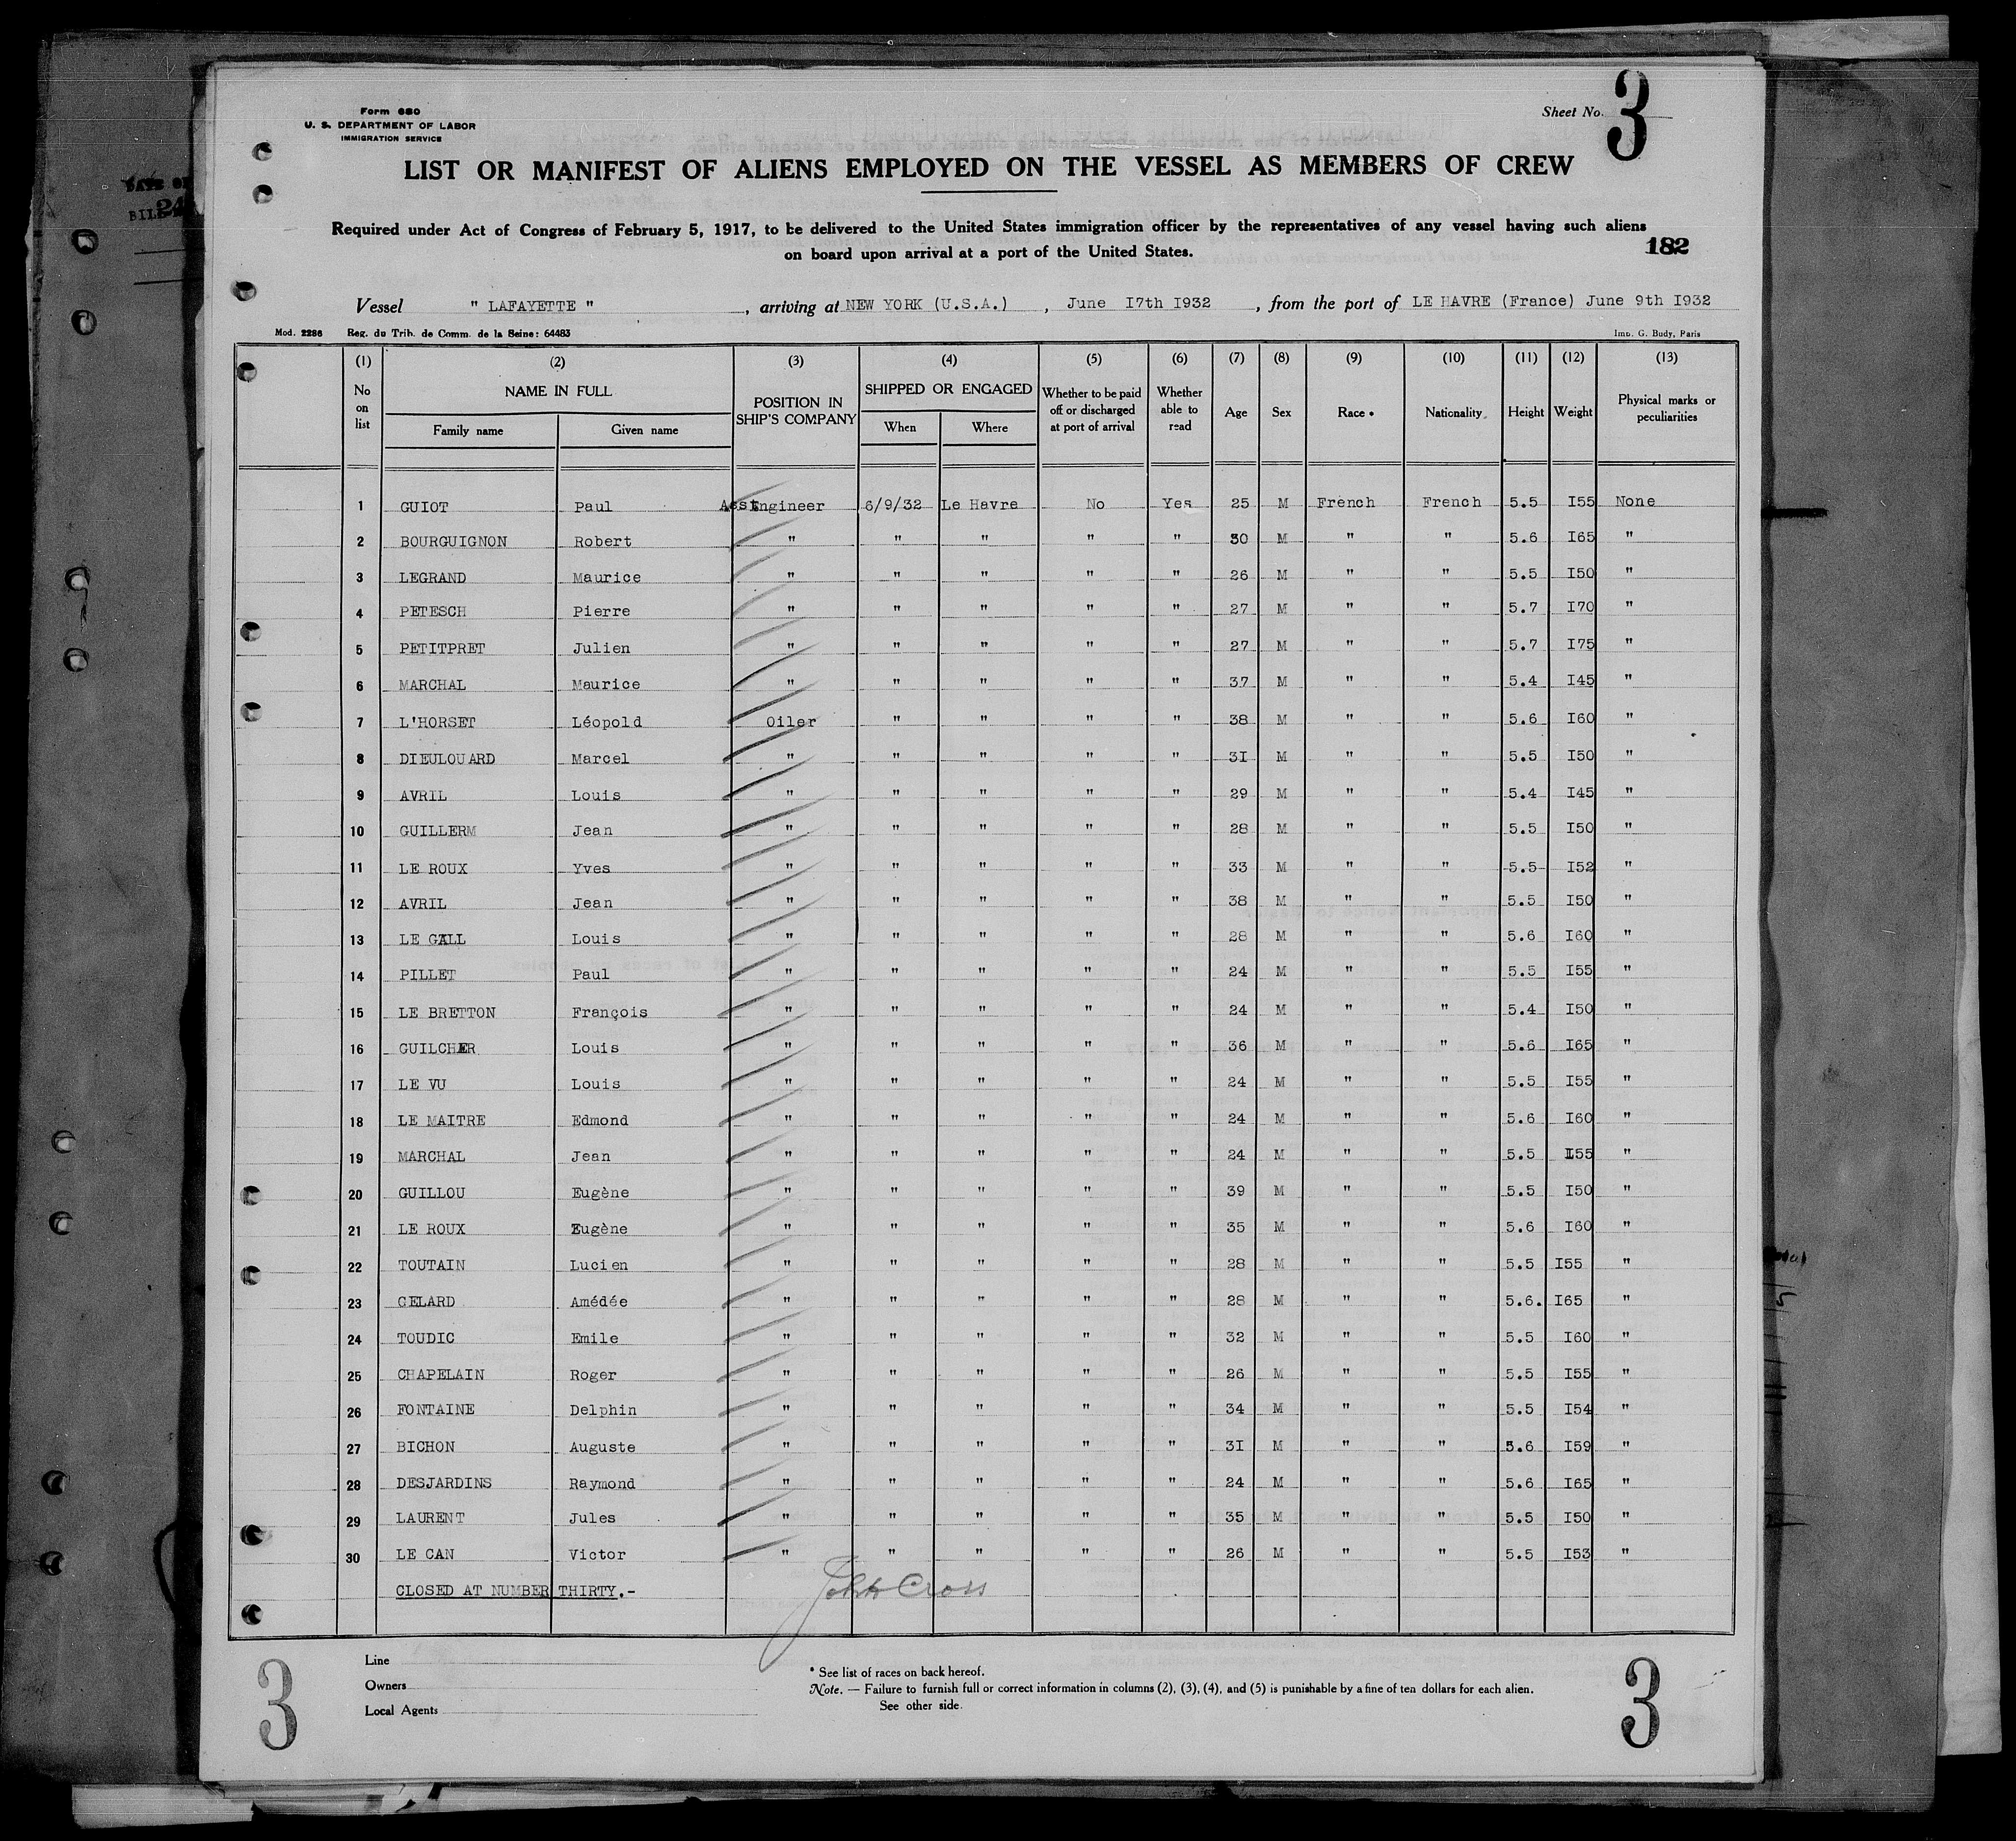 Form 680
U. S. DEPARTMENT OF LABOR
IMMIGRATION SERVICE
Sheet No. 3
LIST OR MANIFEST OF ALIENS EMPLOYED ON THE VESSEL AS MEMBERS OF CREW
Required under Act of Congress of February 5, 1917, to be delivered to the United States immigration officer by the representatives of any vessel having such aliens
on board upon arrival at a port of the United States.
182
Vessel " LAFAYETTE " , arriving at NEW YORK (U.S.A.) , June I7th I932 , from the port of LE HAVRE (France) June 9th I932
Mod. 2286 Reg. du Trib. de Comm. de la Seine: 64483 Imp. G. Budy, Paris
(1) (2) (3) (4) (5) (6) (7) (8) (9) (10) (11) (12) (13)
No on list NAME IN FULL Family name Given name POSITION IN SHIP'S COMPANY SHIPPED OR ENGAGED When Where Whether to be paid off or discharged at port of arrival Whether able to read Age Sex Race * Nationality Height Weight Physical marks or peculiarities
1 GUIOT Paul Asst Engineer 6/9/32 Le Havre No Yes 25 M French French 5.5 I55 None
2 BOURGUIGNON Robert " " " " " 30 M " " 5.6 I65 "
3 LEGRAND Maurice " " " " " 26 M " " 5.5 I50 "
4 PETESCH Pierre " " " " " 27 M " " 5.7 I70 "
5 PETITPRET Julien " " " " " 27 M " " 5.7 I75 "
6 MARCHAL Maurice " " " " " 37 M " " 5.4 I45 "
7 L'HORSET Léopold Oiler " " " " 38 M " " 5.6 I60 "
8 DIEULOUARD Marcel " " " " " 3I M " " 5.5 I50 "
9 AVRIL Louis " " " " " 29 M " " 5.4 I45 "
10 GUILLERM Jean " " " " " 28 M " " 5.5 I50 "
11 LE ROUX Yves " " " " " 33 M " " 5.5 I52 "
12 AVRIL Jean " " " " " 38 M " " 5.5 I50 "
13 LE GALL Louis " " " " " 28 M " " 5.6 I60 "
14 PILLET Paul " " " " " 24 M " " 5.5 I55 "
15 LE BRETTON François " " " " " 24 M " " 5.4 I50 "
16 GUILCHER Louis " " " " " 36 M " " 5.6 I65 "
17 LE VU Louis " " " " " 24 M " " 5.5 I55 "
18 LE MAITRE Edmond " " " " " 24 M " " 5.6 I60 "
19 MARCHAL Jean " " " " " 24 M " " 5.5 I55 "
20 GUILLOU Eugène " " " " " 39 M " " 5.5 I50 "
21 LE ROUX Eugène " " " " " 35 M " " 5.6 I60 "
22 TOUTAIN Lucien " " " " " 28 M " " 5.5 I55 "
23 GELARD Amédée " " " " " 28 M " " 5.6. I65 "
24 TOUDIC Emile " " " " " 32 M " " 5.5 I60 "
25 CHAPELAIN Roger " " " " " 26 M " " 5.5 I55 "
26 FONTAINE Delphin " " " " " 34 M " " 5.5 I54 "
27 BICHON Auguste " " " " " 3I M " " 5.6 I59 "
28 DESJARDINS Raymond " " " " " 24 M " " 5.6 I65 "
29 LAURENT Jules " " " " " 35 M " " 5.5 I50 "
30 LE CAN Victor " " " " " 26 M " " 5.5 I53 "
CLOSED AT NUMBER THIRTY.- John Cross
Line
Owners
Local Agents
* See list of races on back hereof.
Note. — Failure to furnish full or correct information in columns (2), (3), (4), and (5) is punishable by a fine of ten dollars for each alien.
See other side.
3 3